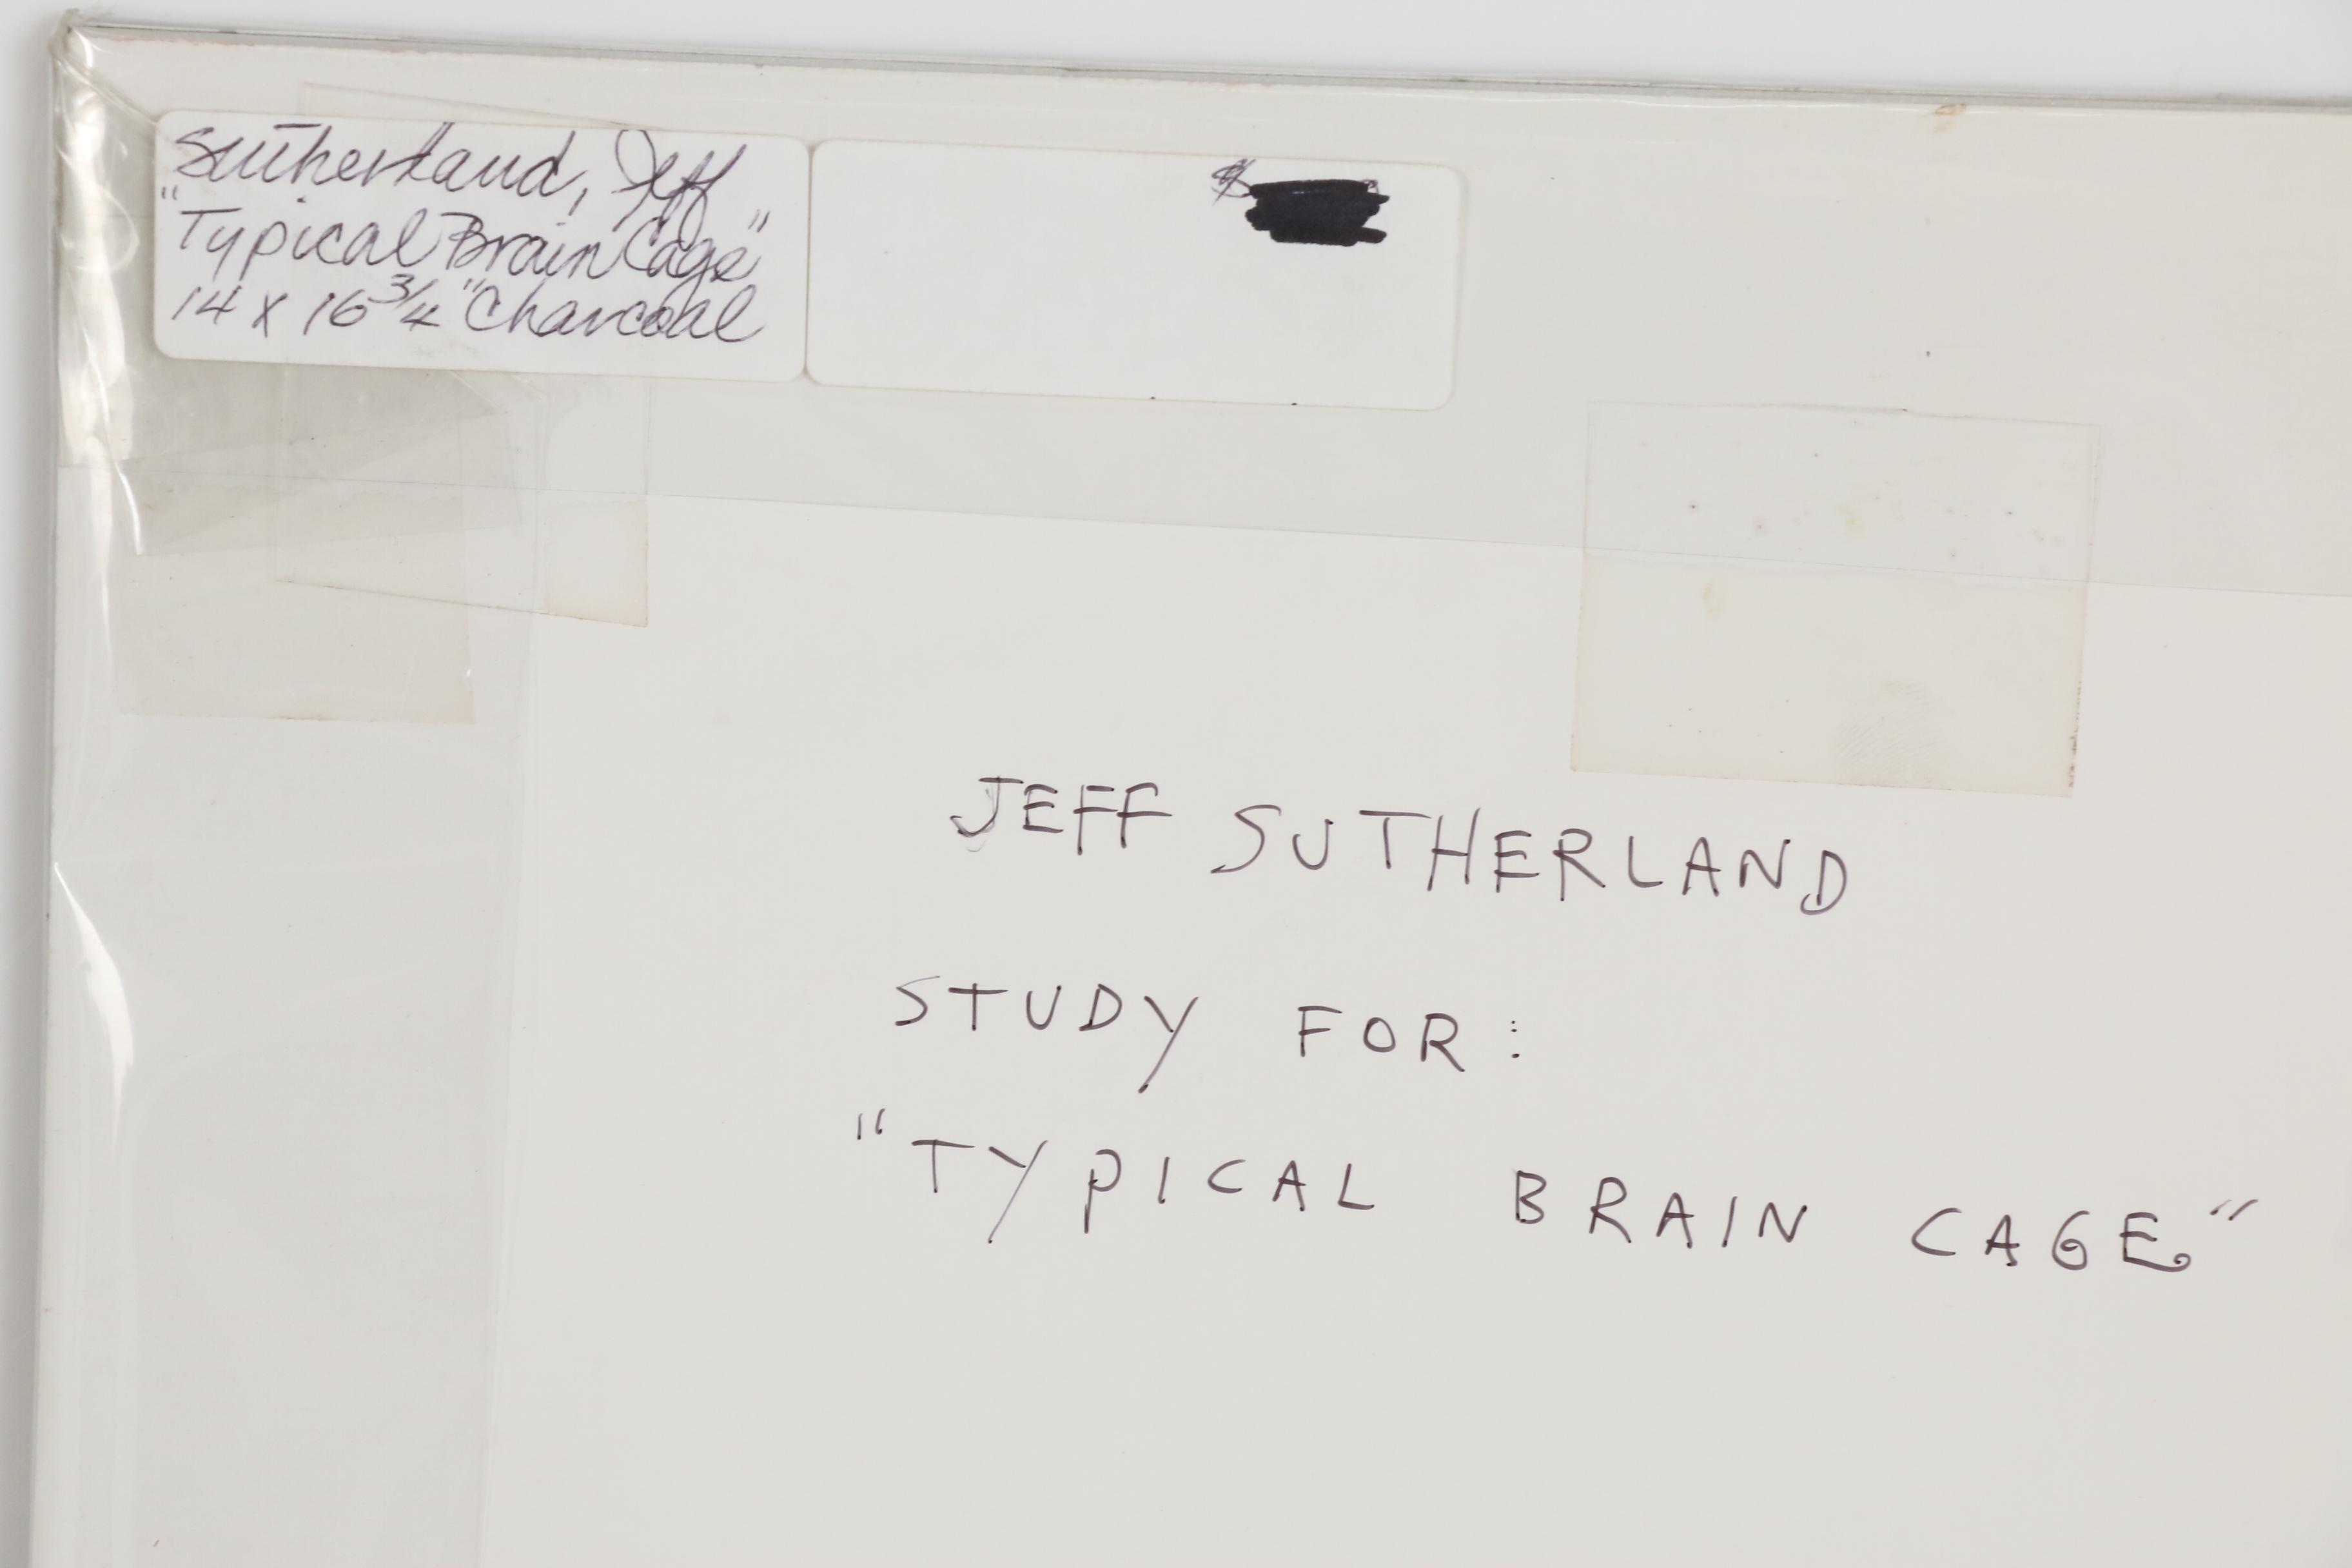 Sutherland, Jeff
"Typical Brain Cage"
14 x 16 3/4" Charcoal
$
JEFF SUTHERLAND
STUDY FOR:
"TYPICAL BRAIN CAGE"